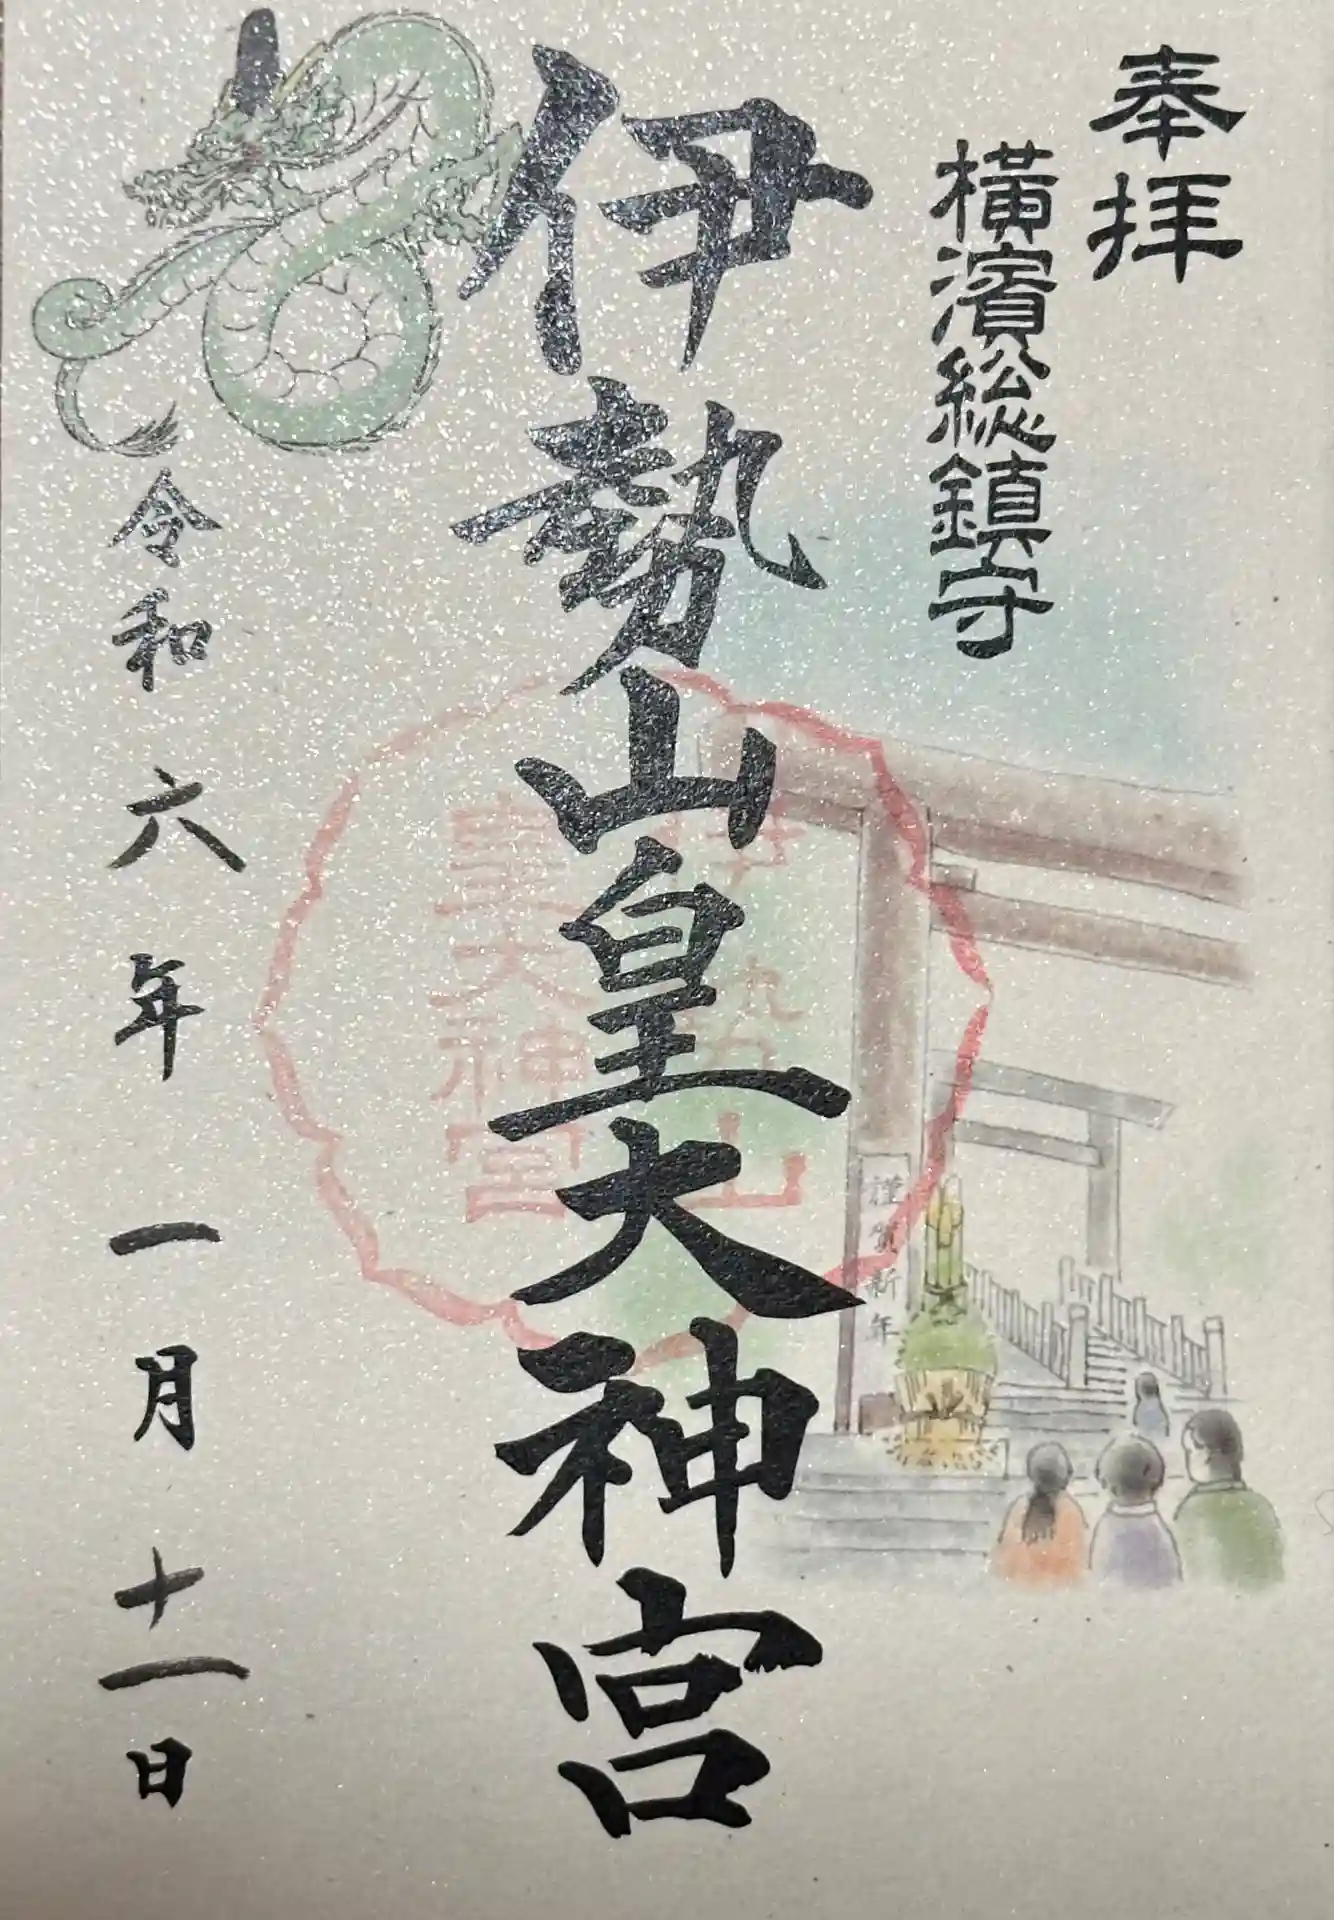 奉拝
横濱総鎮守
伊勢山皇大神宮
伊勢山
皇大神宮
謹賀新年
令和六年一月十一日